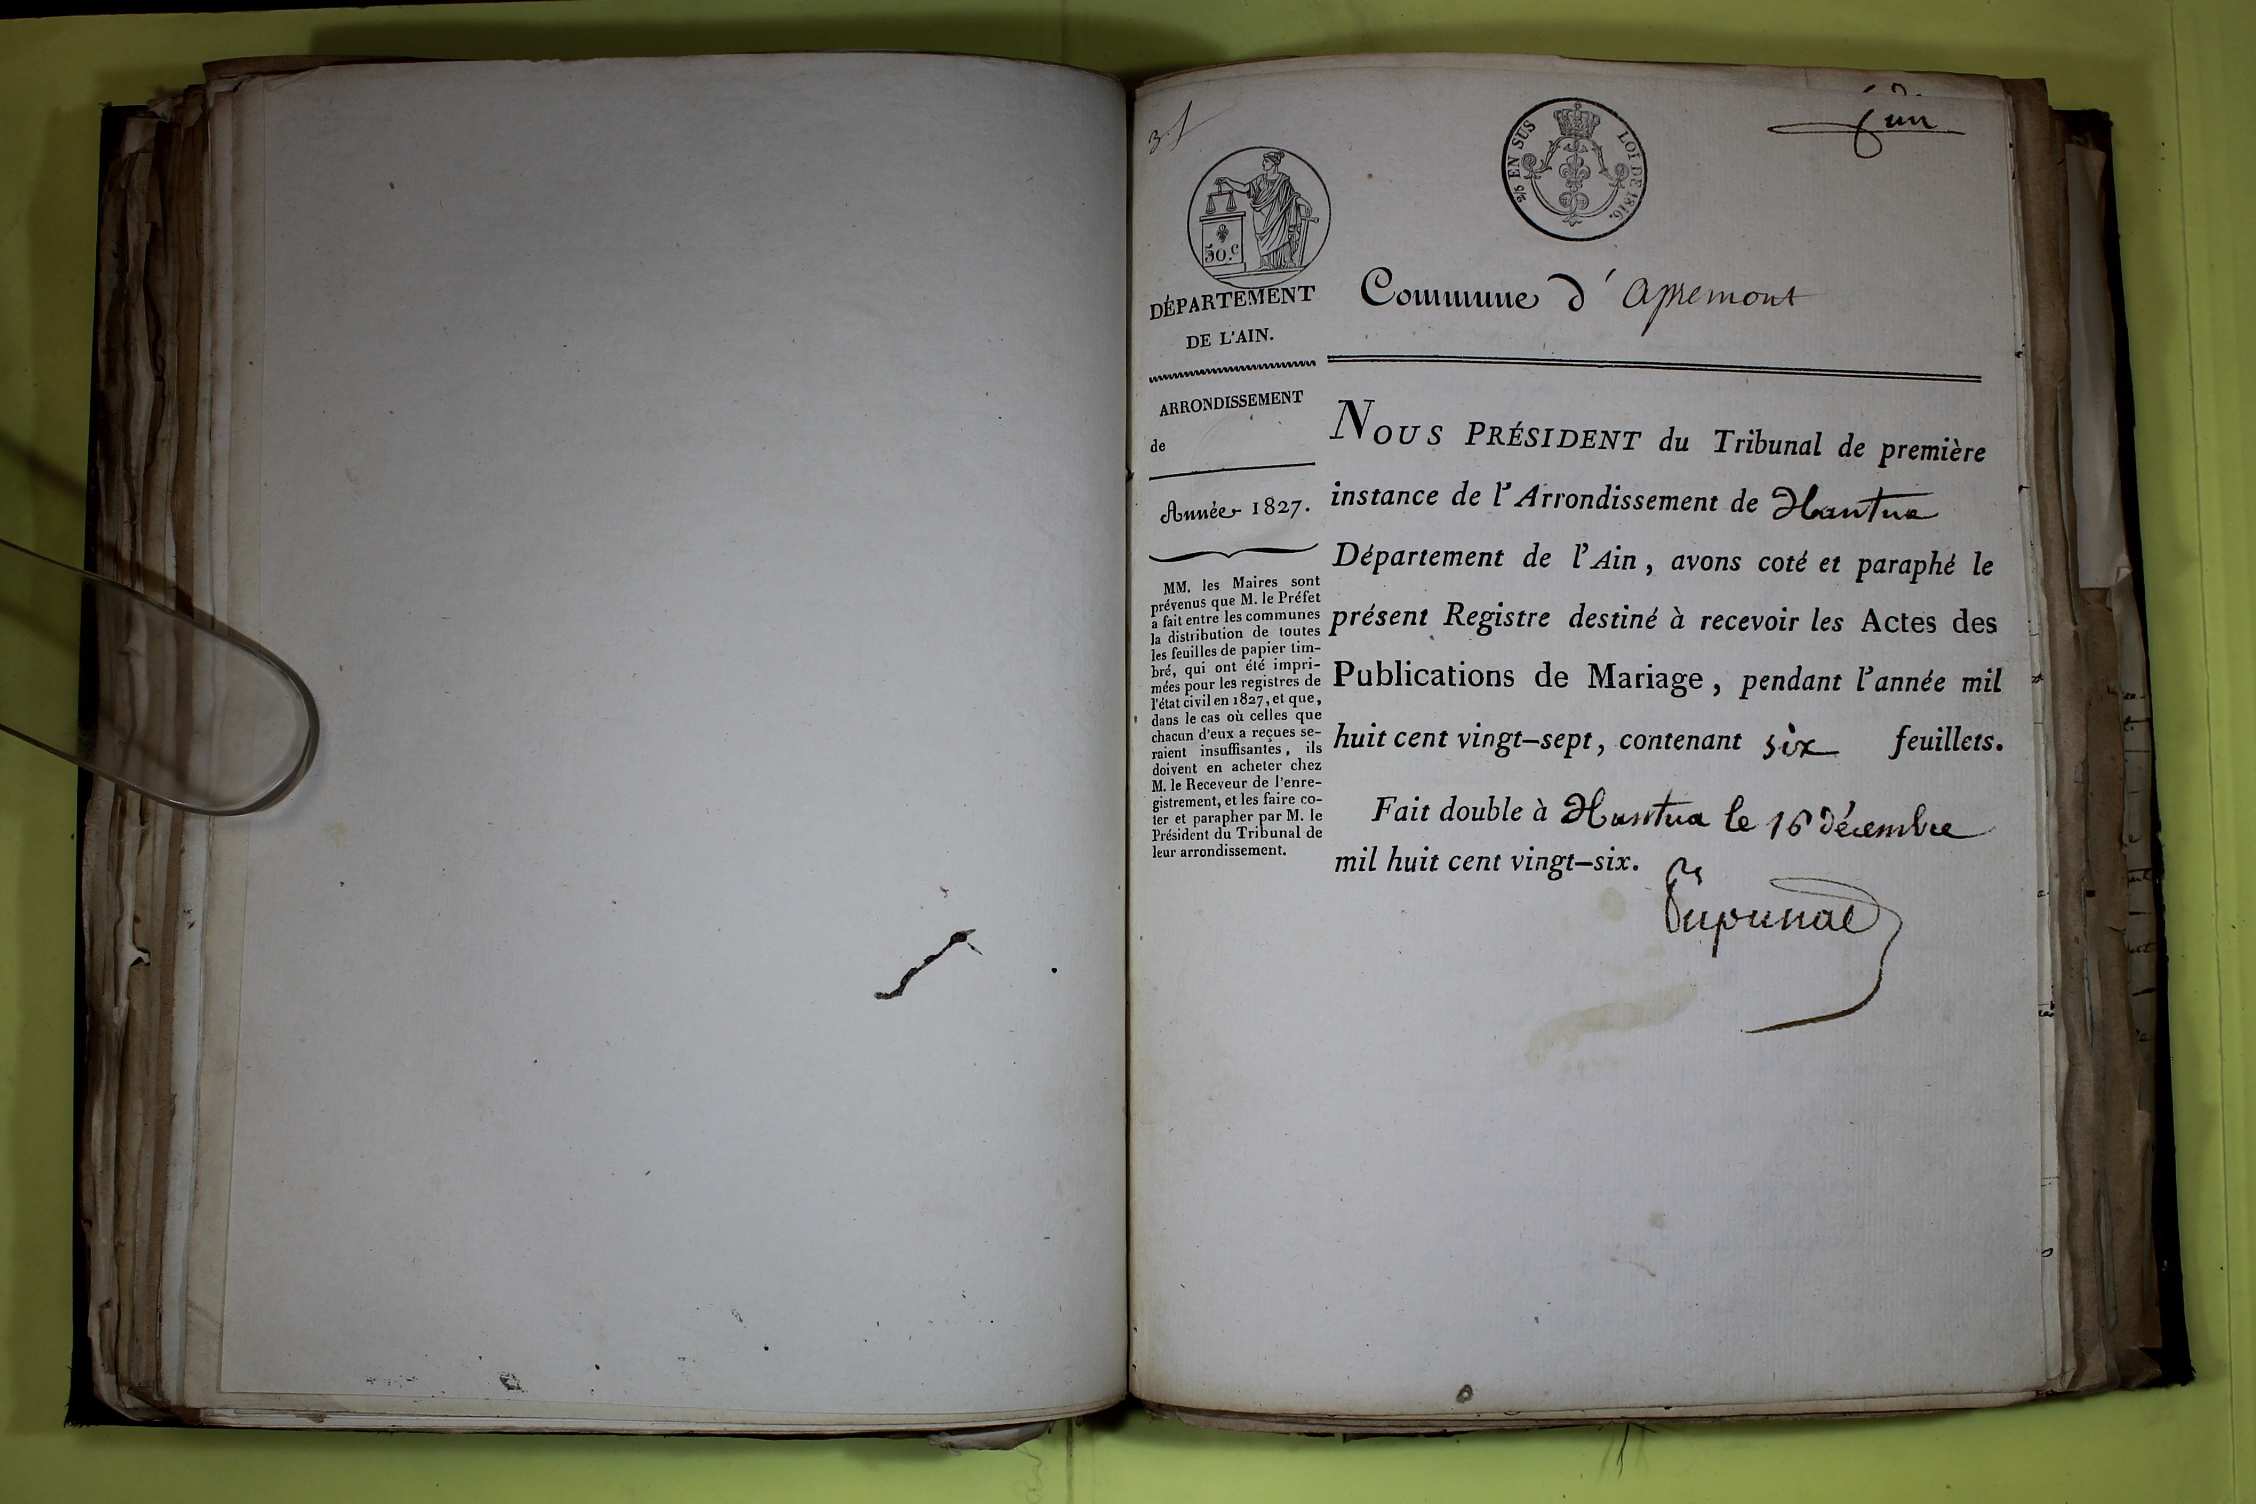 3 f
un
2/5 EN SUS LOI DE 1816.
50.c
DÉPARTEMENT
DE L'AIN.
ARRONDISSEMENT
de
Année 1827.
MM. les Maires sont
prévenus que M. le Préfet
a fait entre les communes
la distribution de toutes
les feuilles de papier tim-
bré, qui ont été impri-
mées pour les registres de
l'état civil en 1827, et que,
dans le cas où celles que
chacun d'eux a reçues se-
raient insuffisantes, ils
doivent en acheter chez
M. le Receveur de l'enre-
gistrement, et les faire co-
ter et parapher par M. le
Président du Tribunal de
leur arrondissement.
Commune d'apremont
NOUS PRÉSIDENT du Tribunal de première
instance de l'Arrondissement de Nantua
Département de l'Ain, avons coté et paraphé le
présent Registre destiné à recevoir les Actes des
Publications de Mariage, pendant l'année mil
huit cent vingt-sept, contenant six feuillets.
Fait double à Nantua le 16 décembre
mil huit cent vingt-six.